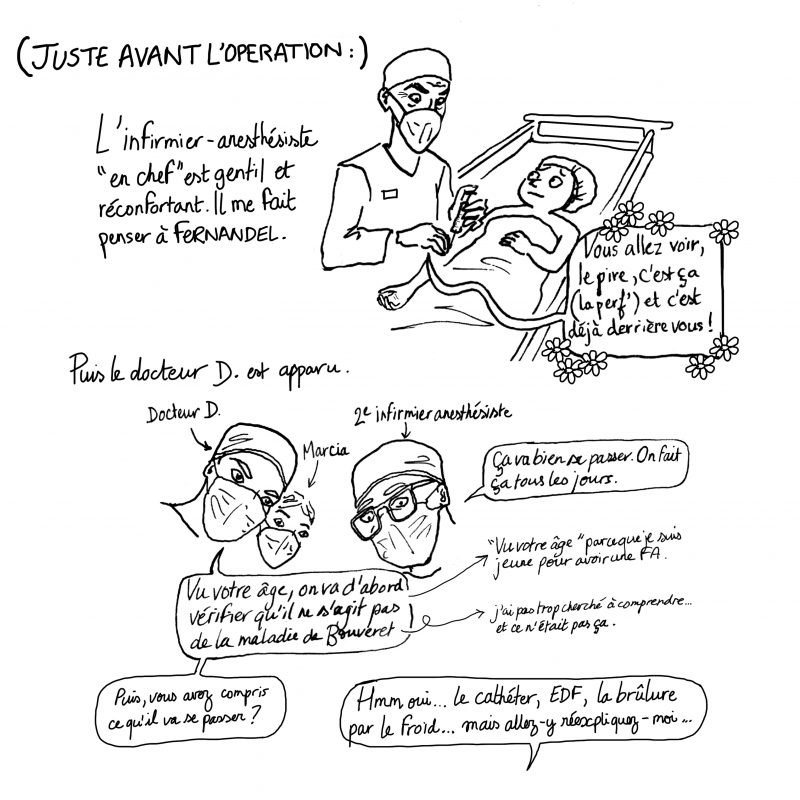 (JUSTE AVANT L'OPERATION :)
L'infirmier-anesthésiste
"en chef" est gentil et
réconfortant. Il me fait
penser à FERNANDEL.
Vous allez voir,
le pire, c'est ça
(la perf') et c'est
déjà derrière vous !
Puis le docteur D. est apparu.
Docteur D.
Marcia
2e infirmier anesthésiste
Ça va bien se passer. On fait
ça tous les jours.
Vu votre âge, on va d'abord
vérifier qu'il ne s'agit pas
de la maladie de Bouveret
"Vu votre âge" parce que je suis
jeune pour avoir une FA.
j'ai pas trop cherché à comprendre...
et ce n'était pas ça.
Puis, vous avez compris
ce qu'il va se passer ?
Hmm oui... le cathéter, EDF, la brûlure
par le froid... mais allez-y réexpliquez-moi...